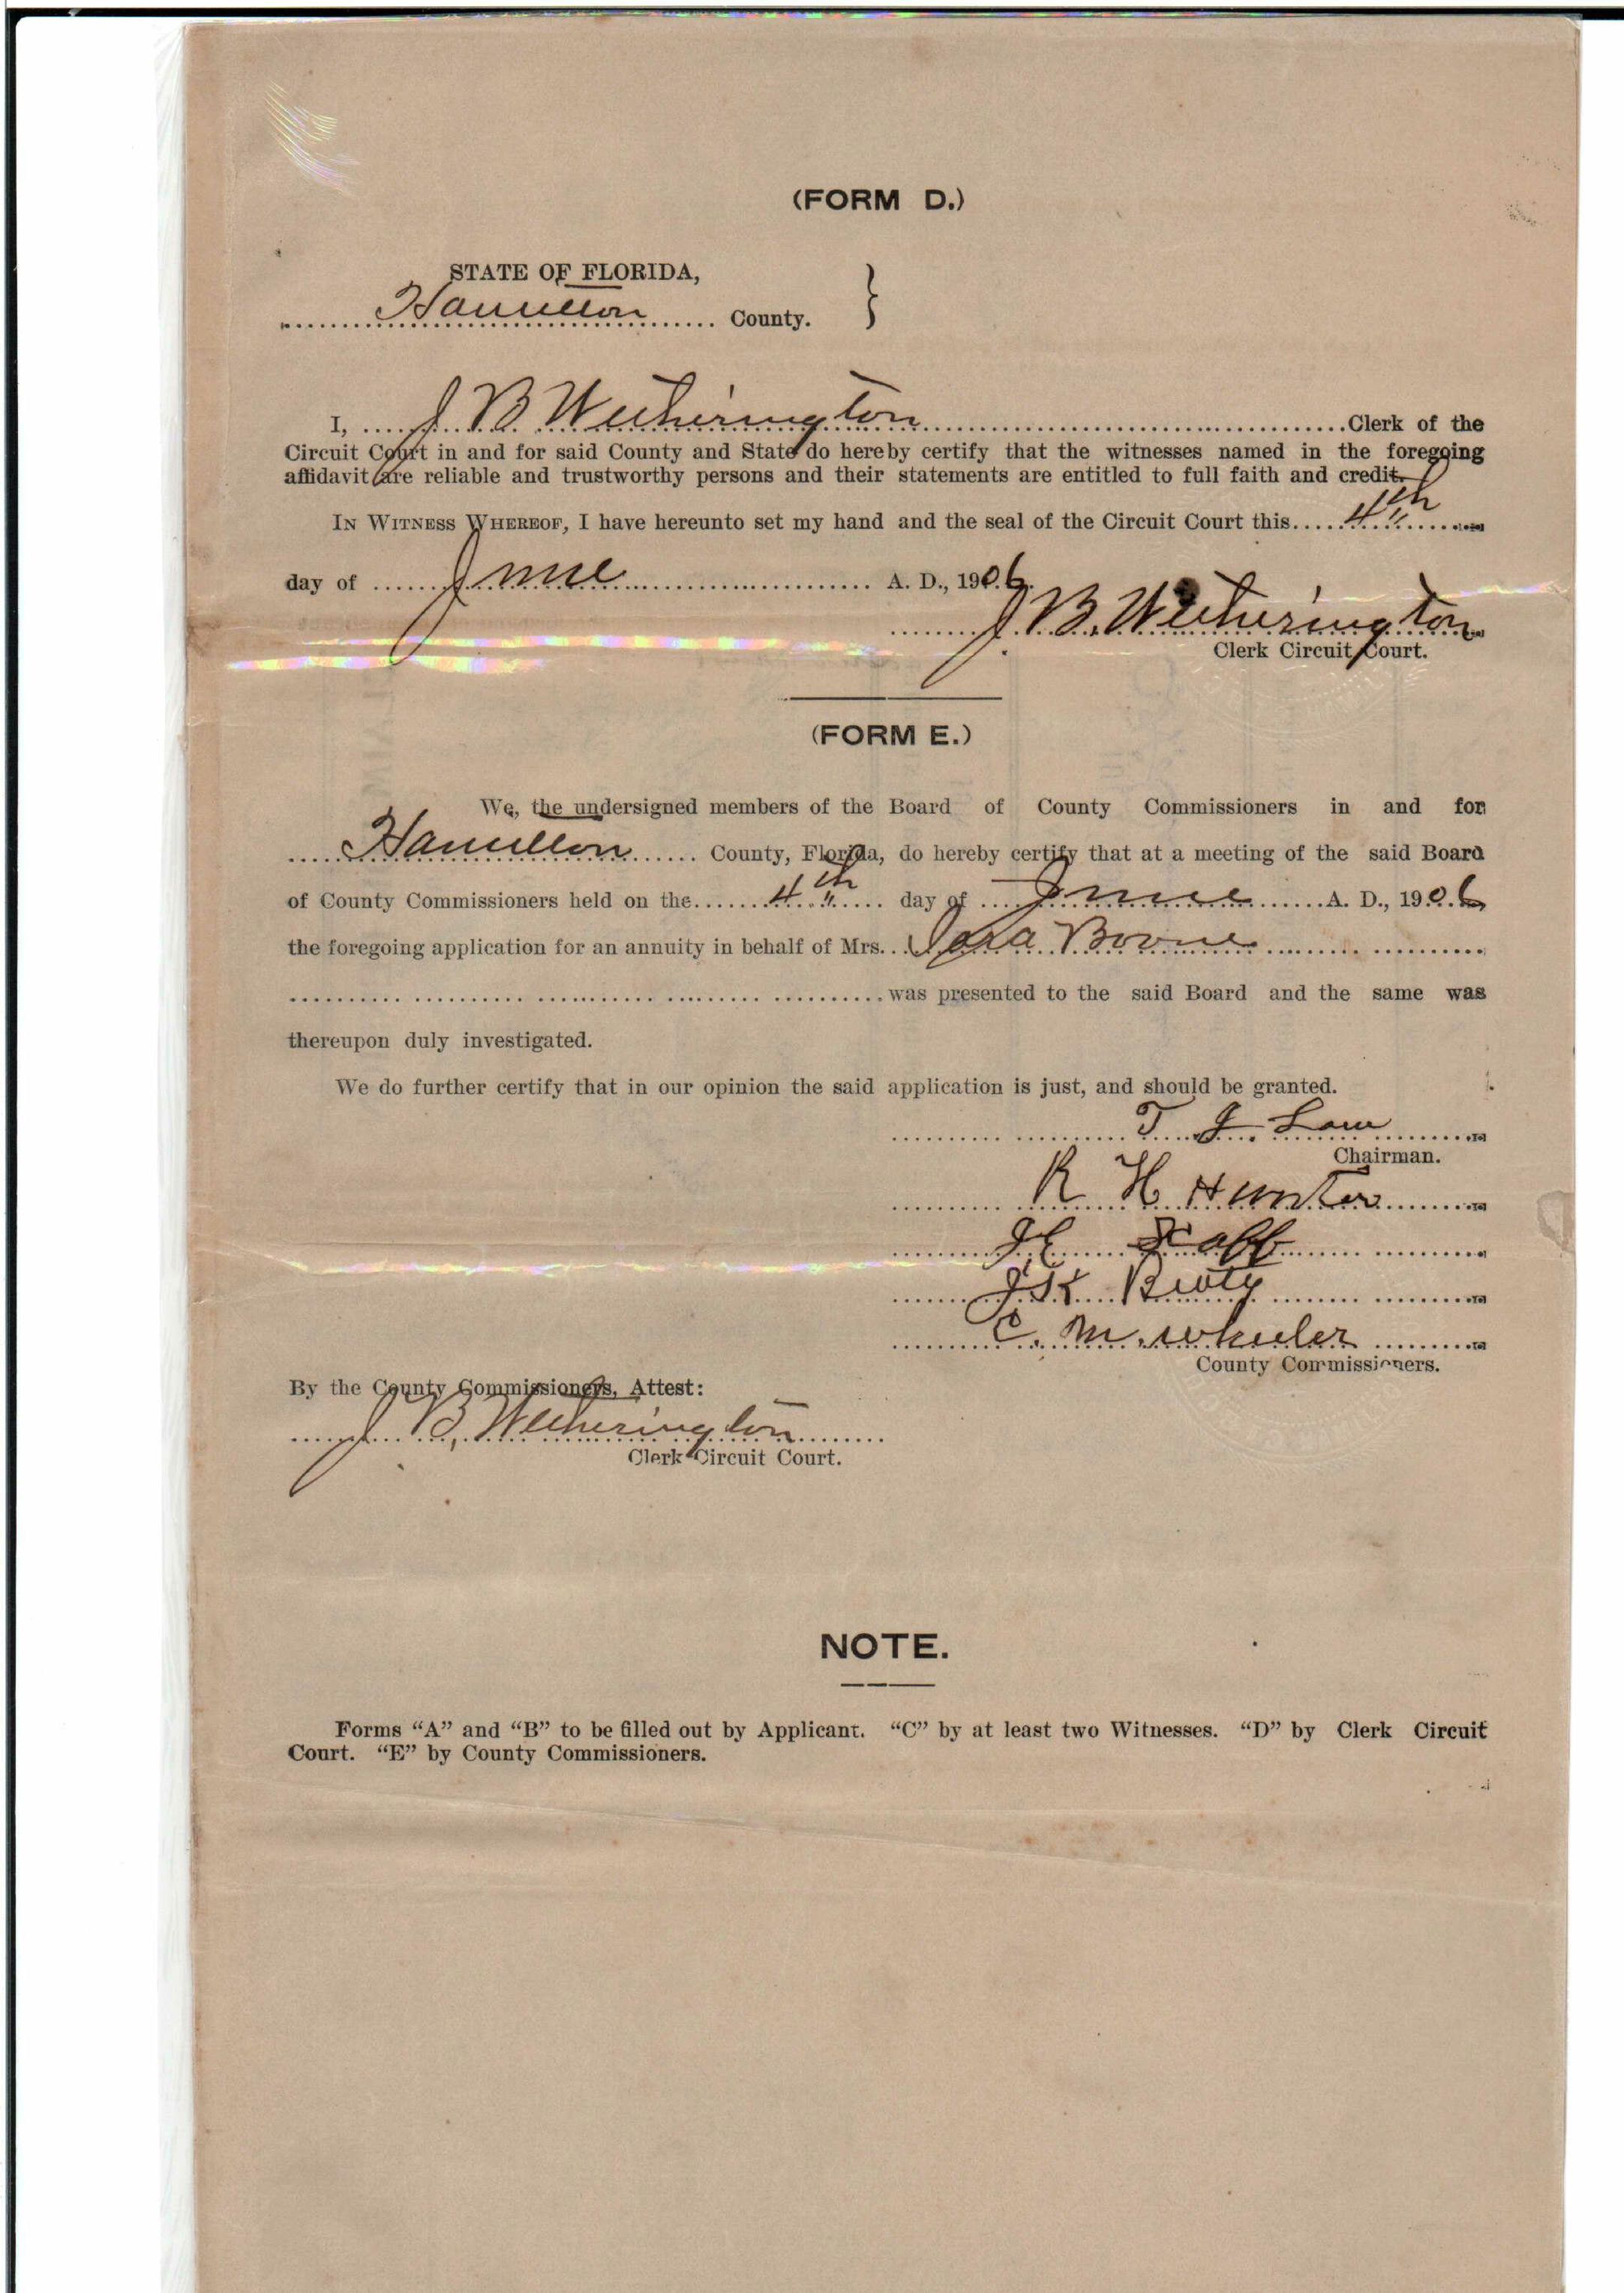 (FORM D.)
STATE OF FLORIDA,
Hamilton County.
I, J B Wetherington Clerk of the
Circuit Court in and for said County and State do hereby certify that the witnesses named in the foregoing
affidavit are reliable and trustworthy persons and their statements are entitled to full faith and credit.
IN WITNESS WHEREOF, I have hereunto set my hand and the seal of the Circuit Court this 4th
day of June A. D., 1906.
J. B. Wetherington
Clerk Circuit Court.
(FORM E.)
We, the undersigned members of the Board of County Commissioners in and for
Hamilton County, Florida, do hereby certify that at a meeting of the said Board
of County Commissioners held on the 4th day of June A. D., 1906,
the foregoing application for an annuity in behalf of Mrs. Boone
was presented to the said Board and the same was
thereupon duly investigated.
We do further certify that in our opinion the said application is just, and should be granted.
T. J.
Chairman.
R H Hunter
J E
J K
C. M. Wheeler
County Commissioners.
By the County Commissioners, Attest:
J B, Wetherington
Clerk Circuit Court.
NOTE.
Forms “A” and “B” to be filled out by Applicant. “C” by at least two Witnesses. “D” by Clerk Circuit
Court. “E” by County Commissioners.